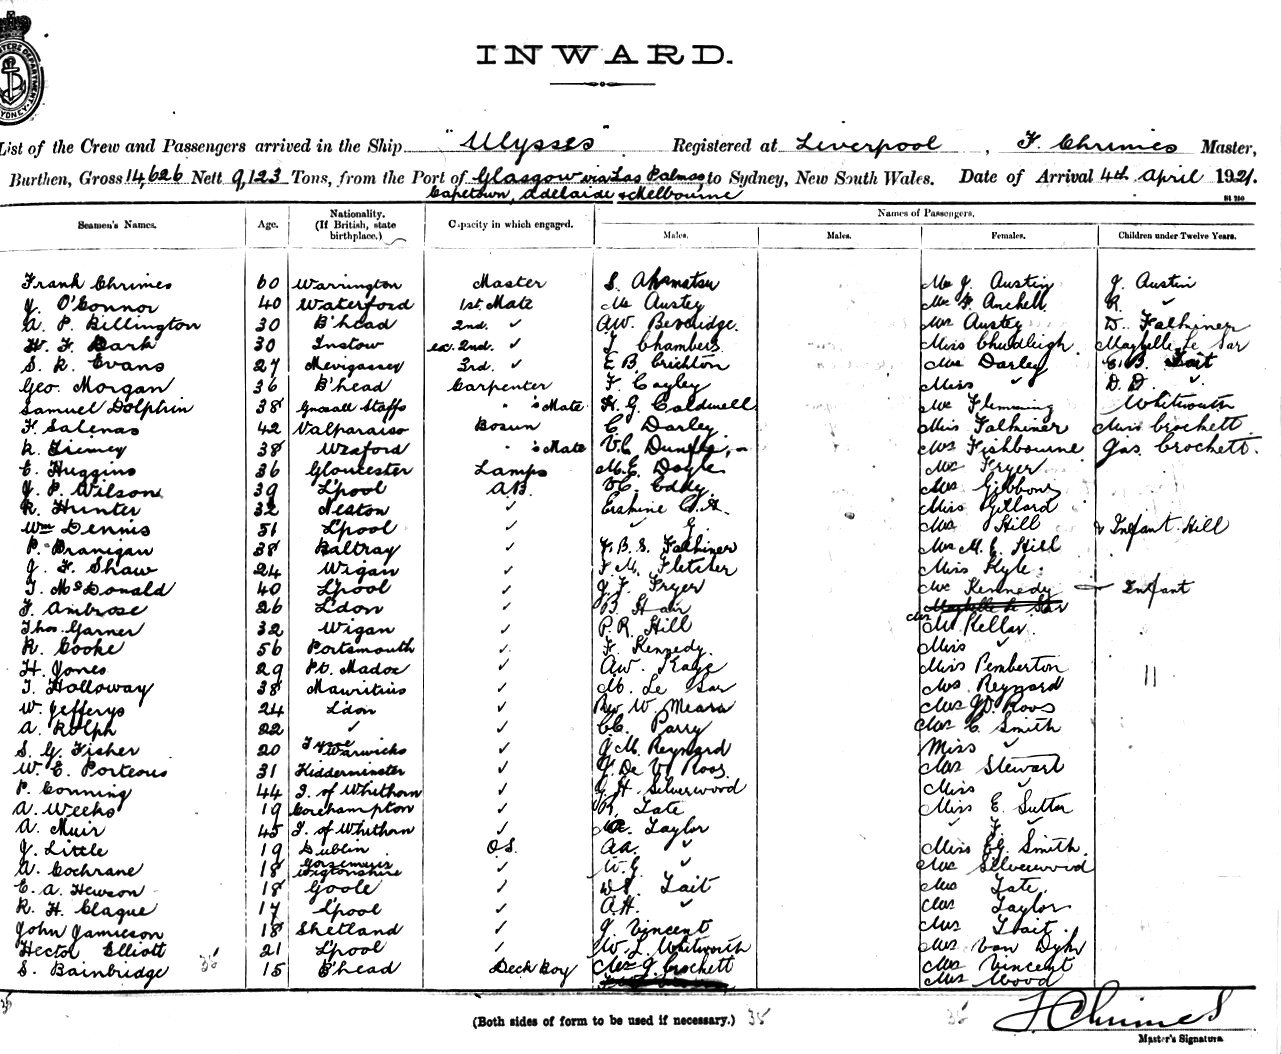 INWARD.
List of the Crew and Passengers arrived in the Ship "Ulysses" Registered at Liverpool, F. Chrimes Master,
Burthen, Gross 14,626 Nett 9,123 Tons, from the Port of Glasgow via Las Palmas, to Sydney, New South Wales. Date of Arrival 4th April 1921.
Capetown, Adelaide & Melbourne
Names of Passengers.
Seamen's Names. Age. Nationality. (If British, state birthplace.) Capacity in which engaged. Males. Males. Females. Children under Twelve Years.
Frank Chrimes 60 Warrington Master S. Mrs J. Austin J. Austin
J. O'Connor 40 Waterford 1st Mate Austey Mrs R. "
A. P. Billington 30 B'head 2nd. " AW. Beveridge. Mrs Austey D. Falkiner
W. F. Dark 30 Instow ex. 2nd. " J. Chambers Miss Chudleigh. Maybelle Le Sar
S. R. Evans 27 Mevigassey 3rd. " E B. Crichton Mrs Darley E. B. Tait
Geo. Morgan 36 B'head Carpenter F. Cayley Miss " D. D. "
Samuel Dolphin 38 Gnosall Staffs " 's Mate H. G. Caldwell Mrs Flemming Whitworth
F. Salenas 42 Valparaiso Bosun C. Darley Miss Falkiner Miss Crockett
R. 38 Wexford " 's Mate V.C. Mrs Fishbourne Gas. Crockett.
C. Huggins 36 Gloucester Lamps M.E. Doyle Mrs Fryer
J. P. Wilson 39 L'pool A.B. V.C. Eddy Mrs Gibbons
R. Hunter 32 Neston " Erskine G.A. Miss Gillard
Wm Dennis 51 L'pool " " G. Mrs Hill & Infant Hill
P. Branigan 38 Baltray " F. B. S. Falkiner Mrs M. E. Hill
J. F. Shaw 24 Wigan " F. M. Fletcher Miss Kyle.
T. McDonald 40 L'pool " J. F. Fryer Mrs Kennedy Infant
F. Ambrose 26 L'don " B. Hair Maybelle Le Sar
Thos. Garner 32 Wigan " P. R. Hill Mrs Kellar.
R. Cooke 56 Portsmouth " F. Kennedy. Miss "
H. Jones 29 Pt. Madoc " AW. Kaye Miss Pemberton
T. Holloway 38 Mauritius " M. Le Sar Mrs Reynard
W. Jefferys 24 L'don " Rev W. Meara Mrs JD. Roos
A. Rolph 22 " " Parry Mrs C. Smith
S. G. Fisher 20 Warwicks " J M. Reynard Miss "
W. E. Porteous 31 Kidderminster " J. De V. Roos Mrs Stewart
P. Conning 44 I. of Whithorn " G. H. Silverwood Miss "
A. Weeks 19 Corehampton " R. Tate Miss E. Sutton
A. Muir 45 I. of Whithorn " Taylor " F. "
J. Little 19 Dublin O.S. Aa. " Miss Smith.
A. Cochrane 18 Wigtonshire " W. G. " Mrs Silverwood
C. A. Hewson 18 Goole " Tait Mrs Tate.
R. H. Clague 17 L'pool " A.H. " Mrs Taylor
John Jamieson 18 Shetland " J. Vincent Mrs Tait.
Hector Elliott 21 L'pool " W. L. Whitworth Mrs Van Dyk
S. Bainbridge 15 B'head Deck Boy Mrs J. Crockett Mrs Vincent
Mrs Wood
(Both sides of form to be used if necessary.)
F. Chrimes
Master's Signature